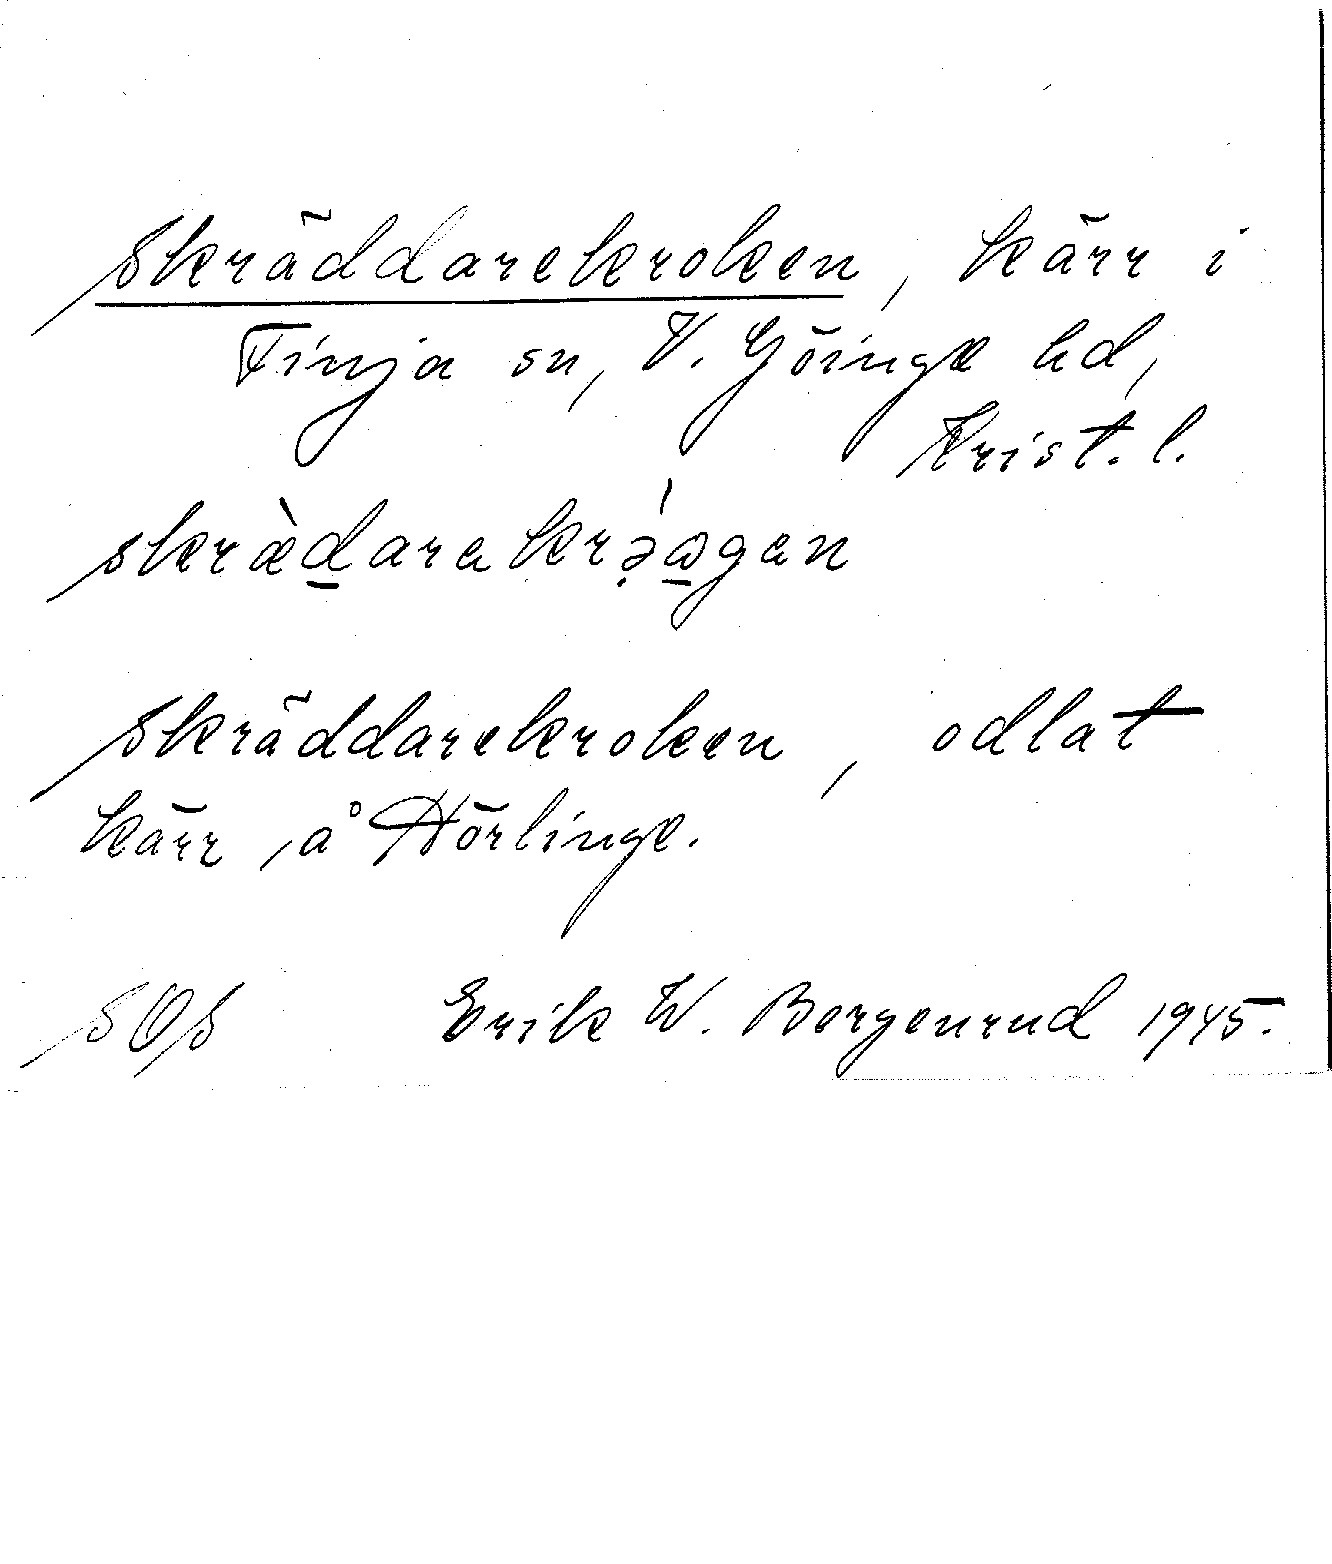 Skräddarekroken, kärr i
Finja sn, V. Göinge hd,
Krist. l.
skræ̀d̲arakrə̣́a̲gen
Skräddarekroken, odlat
kärr, å Hörlinge.
SOS Erik W. Bergenrud 1945.